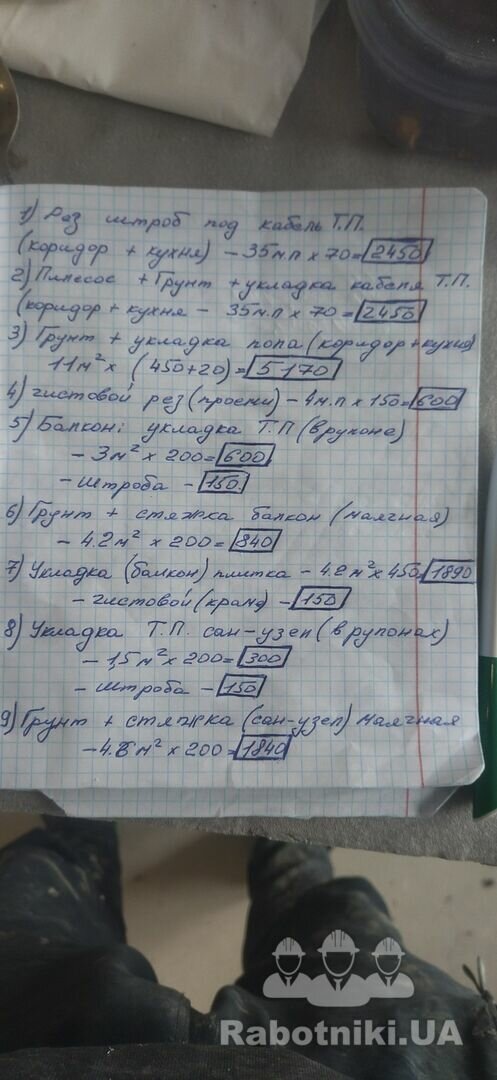 1) Раз штроб под кабель Т.П.
(коридор + кухня) - 35м.п х 70= 2450
2) Пылесос + Грунт + укладка кабеля Т.П.
(коридор + кухня - 35м.п х 70= 2450
3) Грунт + укладка пола (коридор+кухня)
11м² х (450+20)= 5170
4) чистовой рез (проемы) - 4м.п х 150= 600
5) Балкон: укладка Т.П (в рулоне)
- 3м² х 200= 600
- штроба - 150
6) Грунт + стяжка балкон (маячная)
- 4.2м² х 200= 840
7) Укладка (балкон) плитка - 4.2м² х 450 1890
- чистовой (кромка) - 150
8) Укладка Т.П. сан-узел (в рулонах)
- 1,5м² х 200= 300
- штроба - 150
9) Грунт + стяжка (сан-узел) маячная
- 4.6м² х 200= 1840
Rabotniki.UA